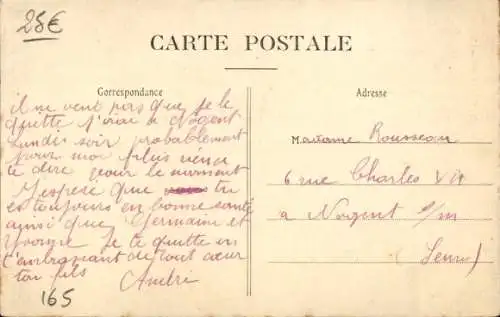 25€
CARTE POSTALE
Correspondance
Adresse
il ne veut pas que je le
quitte j'irai a Nogent
Lundi soir probablement
plus
te dire pour le moment
J'espere que tu
es toujours en bonne santé
ainsi que Germaine et
Yvonne je te quitte en
t'embrassant de tout cœur
ton fils
André
Madame Rousseau
6 rue Charles VII
a Nogent s/m
(Seine)
165